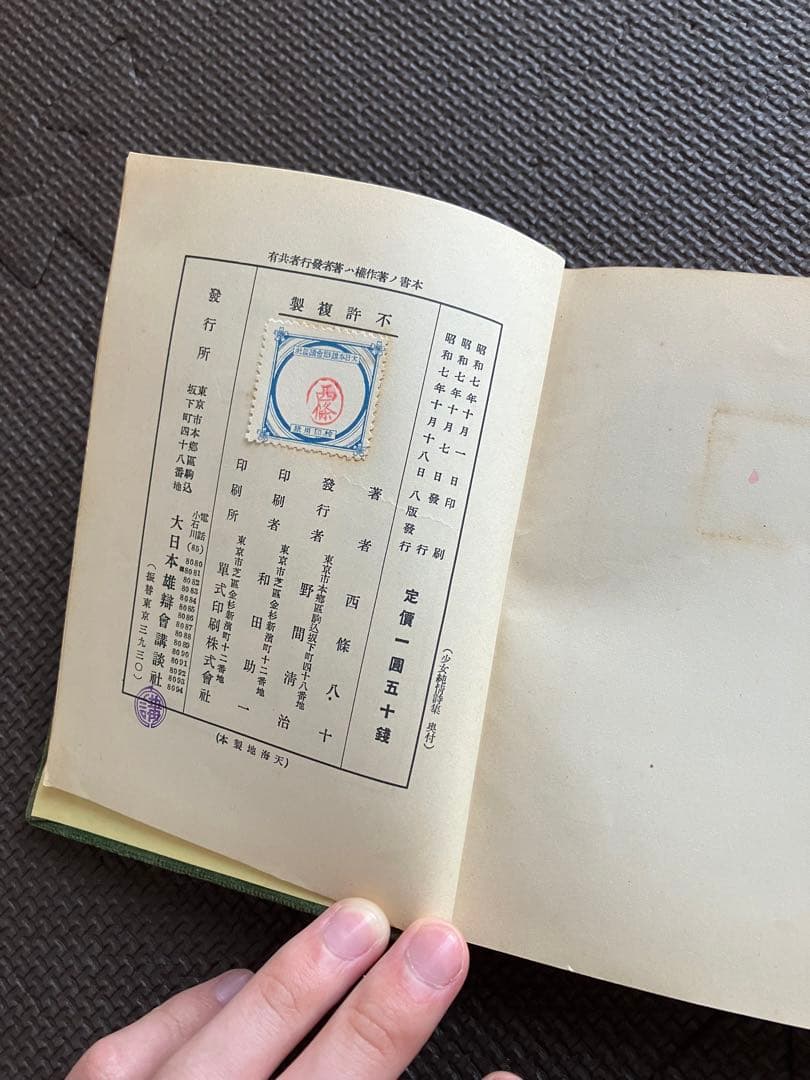 本書ノ著作權ハ著者發行者共有
昭和七年十月一日印刷
昭和七年十月七日發行
昭和七年十月十八日八版發行
(少女純情詩集 奥付)
定價一圓五十錢
不許複製
大日本雄辯會講談社
西條
檢印用紙
著者 西條八十
東京市本鄕區駒込坂下町四十八番地
發行者 野間淸治
東京市芝區金杉新濱町十二番地
印刷者 和田助一
東京市芝區金杉新濱町十二番地
印刷所 單式印刷株式會社
發行所
東京市本鄕區駒込
坂下町四十八番地
大日本雄辯會講談社
電話
小石川(85)
8080
8081
8082
8083
8084
8085
8086
8087
8088
8089
8090
8091
8092
8093
8094
(振替東京三九三〇)
講
(天海地製本)